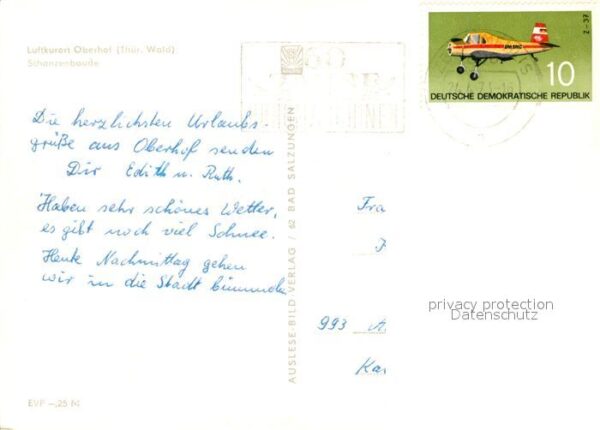 Luftkurort Oberhof (Thür. Wald)
Schanzenbaude
Die herzlichsten Urlaubs-
grüße aus Oberhof senden
Dir Edith u. Ruth.
Haben sehr schönes Wetter,
es gibt noch viel Schnee.
Heute Nachmittag gehen
wir in die Stadt
EVP -,25 M
AUSLESE-BILD-VERLAG / 62 BAD SALZUNGEN
DM-SMC
Z-37
10
DEUTSCHE DEMOKRATISCHE REPUBLIK
Fra
993
Kar
privacy protection
Datenschutz